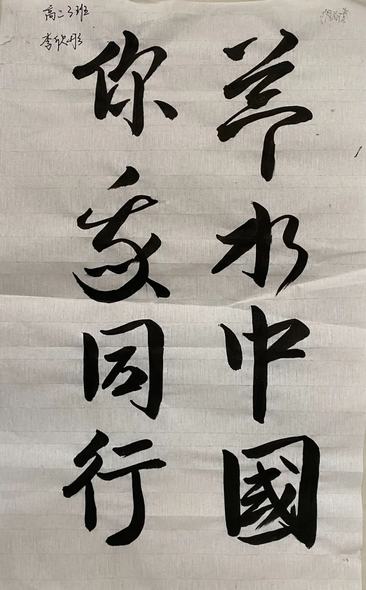 节水中國
你我同行
高二3班
李欣彤